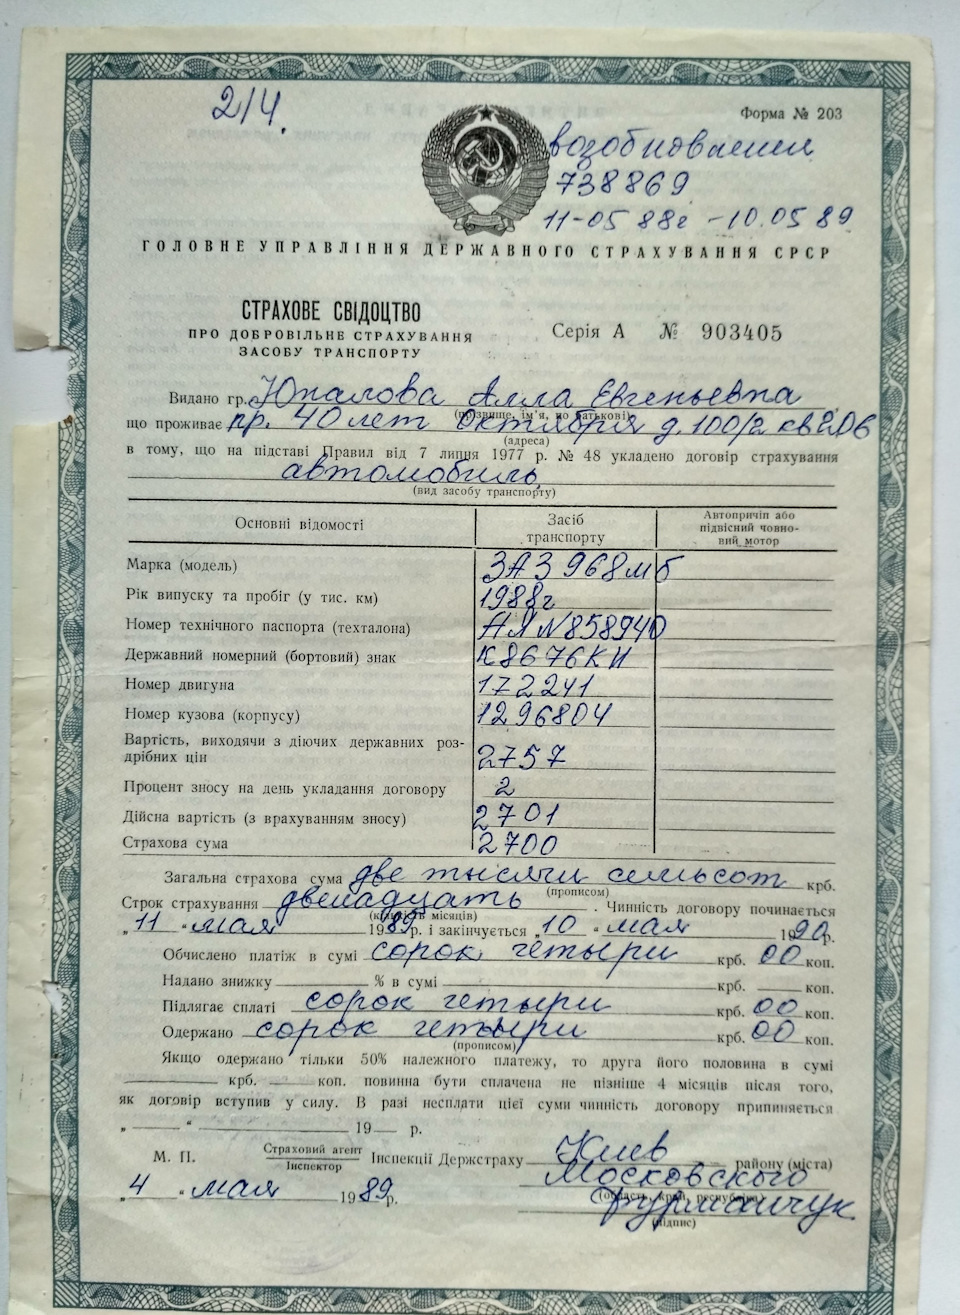 2/4.
Форма № 203
возобновлении
738869
11-05 88г - 10.05 89
ГОЛОВНЕ УПРАВЛІННЯ ДЕРЖАВНОГО СТРАХУВАННЯ СРСР
СТРАХОВЕ СВІДОЦТВО
ПРО ДОБРОВІЛЬНЕ СТРАХУВАННЯ
ЗАСОБУ ТРАНСПОРТУ
Серія А № 903405
Видано гр. Юпалова Алла Евгеньевна
(прізвище, ім'я, по батькові)
що проживає пр. 40 лет октября д. 100/2 кв
(адреса)
в тому, що на підставі Правил від 7 липня 1977 р. № 48 укладено договір страхування
автомобиль
(вид засобу транспорту)
Основні відомості Засіб транспорту Автопричіп або підвісний човновий мотор
Марка (модель) ЗАЗ 968мб
Рік випуску та пробіг (у тис. км) 1988г
Номер технічного паспорта (техталона) АЯ N858940
Державний номерний (бортовий) знак К8676КИ
Номер двигуна 172241
Номер кузова (корпусу) 1296804
Вартість, виходячи з діючих державних роз-
дрібних цін 2757
Процент зносу на день укладання договору 2
Дійсна вартість (з врахуванням зносу) 2701
Страхова сума 2700
Загальна страхова сума две тысячи семьсот крб.
(прописом)
Строк страхування двенадцать . Чинність договору починається
(кількість місяців)
„11“ мая 1989р. і закінчується „10“ мая 1990р.
Обчислено платіж в сумі сорок четыри крб. 00 коп.
Надано знижку % в сумі крб. коп.
Підлягає сплаті сорок четыри крб. 00 коп.
Одержано сорок четыри крб. 00 коп.
(прописом)
Якщо одержано тільки 50% належного платежу, то друга його половина в сумі
крб. коп. повинна бути сплачена не пізніше 4 місяців після того,
як договір вступив у силу. В разі несплати цієї суми чинність договору припиняється
„ “ 19 р.
М. П. Страховий агент Інспектор Інспекції Держстраху Киев району (міста)
Московского
(область, край, республіка)
„4“ мая 1989р.
(підпис)